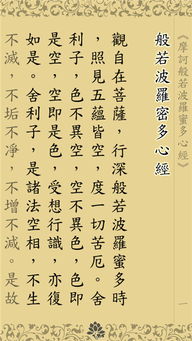 《摩訶般若波羅蜜多心經》
一
般若波羅密多心經
觀自在菩薩，行深般若波羅蜜多時
，照見五蘊皆空，度一切苦厄。舍
利子，色不異空，空不異色，色即
是空，空即是色，受想行識，亦復
如是。舍利子，是諸法空相，不生
不滅，不垢不淨，不增不減。是故